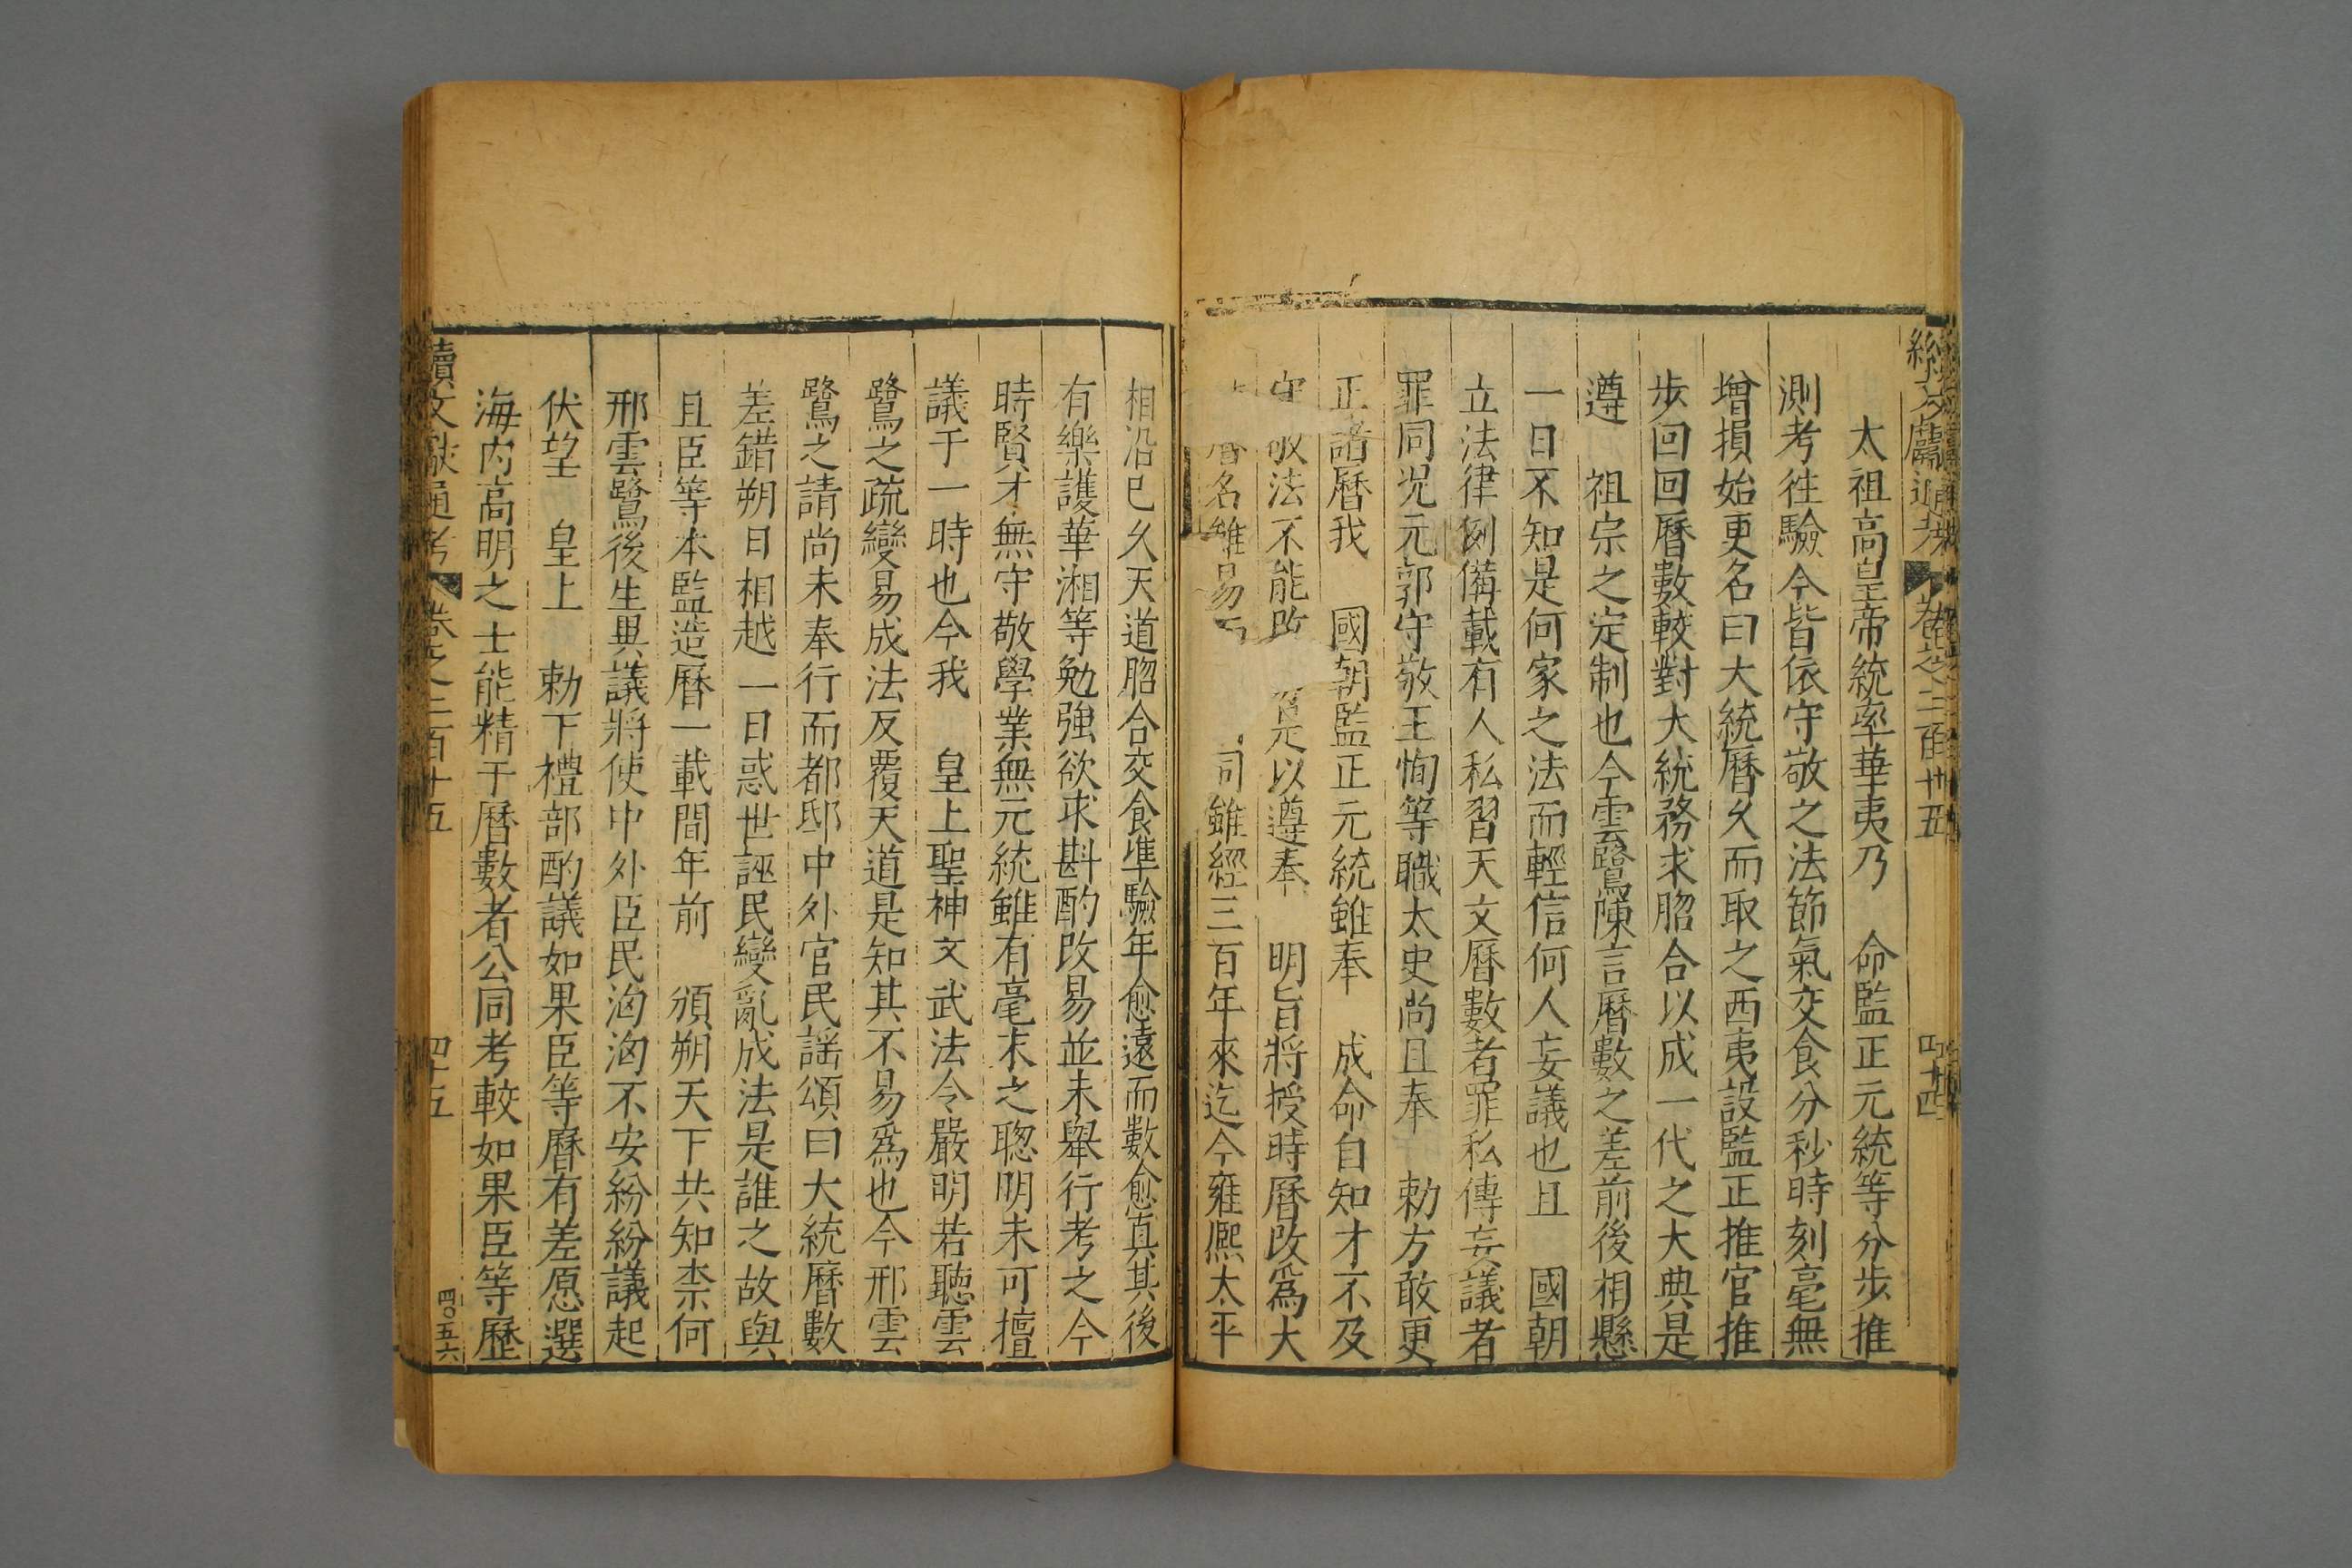 續文獻通考 卷之二百十五 四十四
太祖高皇帝統率華夷乃 命監正元統等分步推
測考徃驗今皆依守敬之法節氣交食分秒時刻毫無
增損始更名曰大統曆久而取之西夷設監正推官推
步回回曆數較對大統務求脗合以成一代之大典是
遵 祖宗之定制也今雲鷺陳言曆數之差前後相懸
一日不知是何家之法而輕信何人妄議也且 國朝
立法律例備載有人私習天文曆數者罪私傳妄議者
罪同况元郭守敬王恂等職太史尚且奉 勅方敢更
正諸曆我 國朝監正元統雖奉 成命自知才不及
守敬法不能改 是以遵奉 明旨將授時曆改爲大
曆名雖易 司雖經三百年來迄今雍熈太平
相沿已久天道脗合交食準驗年愈遠而數愈真其後
有樂頀華湘等勉強欲求斟酌改易並未舉行考之今
時賢才無守敬學業無元統雖有毫末之聦明未可擅
議于一時也今我 皇上聖神文武法令嚴明若聽雲
鷺之疏變易成法反覆天道是知其不易爲也今邢雲
鷺之請尚未奉行而都邸中外官民謡頌曰大統曆數
差錯朔日相越一日惑世誣民變亂成法是誰之故與
且臣等本監造曆一載間年前 頒朔天下共知柰何
邢雲鷺後生異議將使中外臣民洶洶不安紛紛議起
伏望 皇上 勅下禮部酌議如果臣等曆有差愿選
海内高明之士能精于曆數者公同考較如果臣等歷
續文獻通考 卷之二百十五 四十五
四〇五六